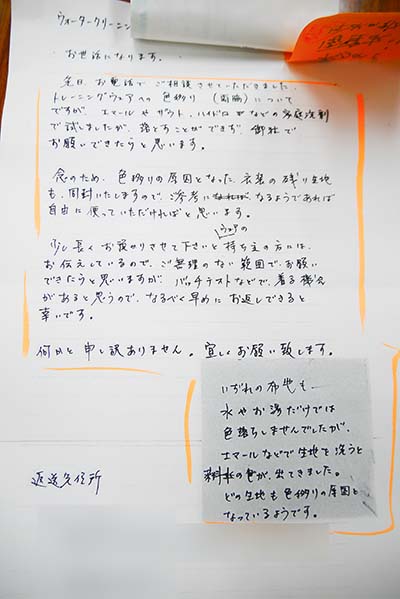 ウォータークリーニン
お世話になります。
先日、お電話で ご相談させていただきました、
トレーニングウェアへの 色移り （両脇）について
ですが、エマールや ザウト、ハイドロ などの 家庭洗剤
で試しましたが、落とすことができず、御社で
お願いできたらと思います。
念のため、色移りの原因となった、衣装の残り生地
も、同封いたしますので、ご参考になるようであれば
自由に使っていただければと思います。
ウェアの
少し長くお預かりさせて下さいと持ち主の方には、
お伝えしているので、ご無理のない範囲で、お願い
できたらと思いますが、 などで、着る機会
があると思うので、なるべく早めに お返しできると
幸いです。
何かと申し訳ありません。宜しくお願い致します。
いずれの布地も
水やお湯だけでは
色落ちしませんでしたが、
エマールなどで生地を洗うと
染料の色が、出てきました。
どの生地も色移りの原因と
なっているようです。
返送先住所